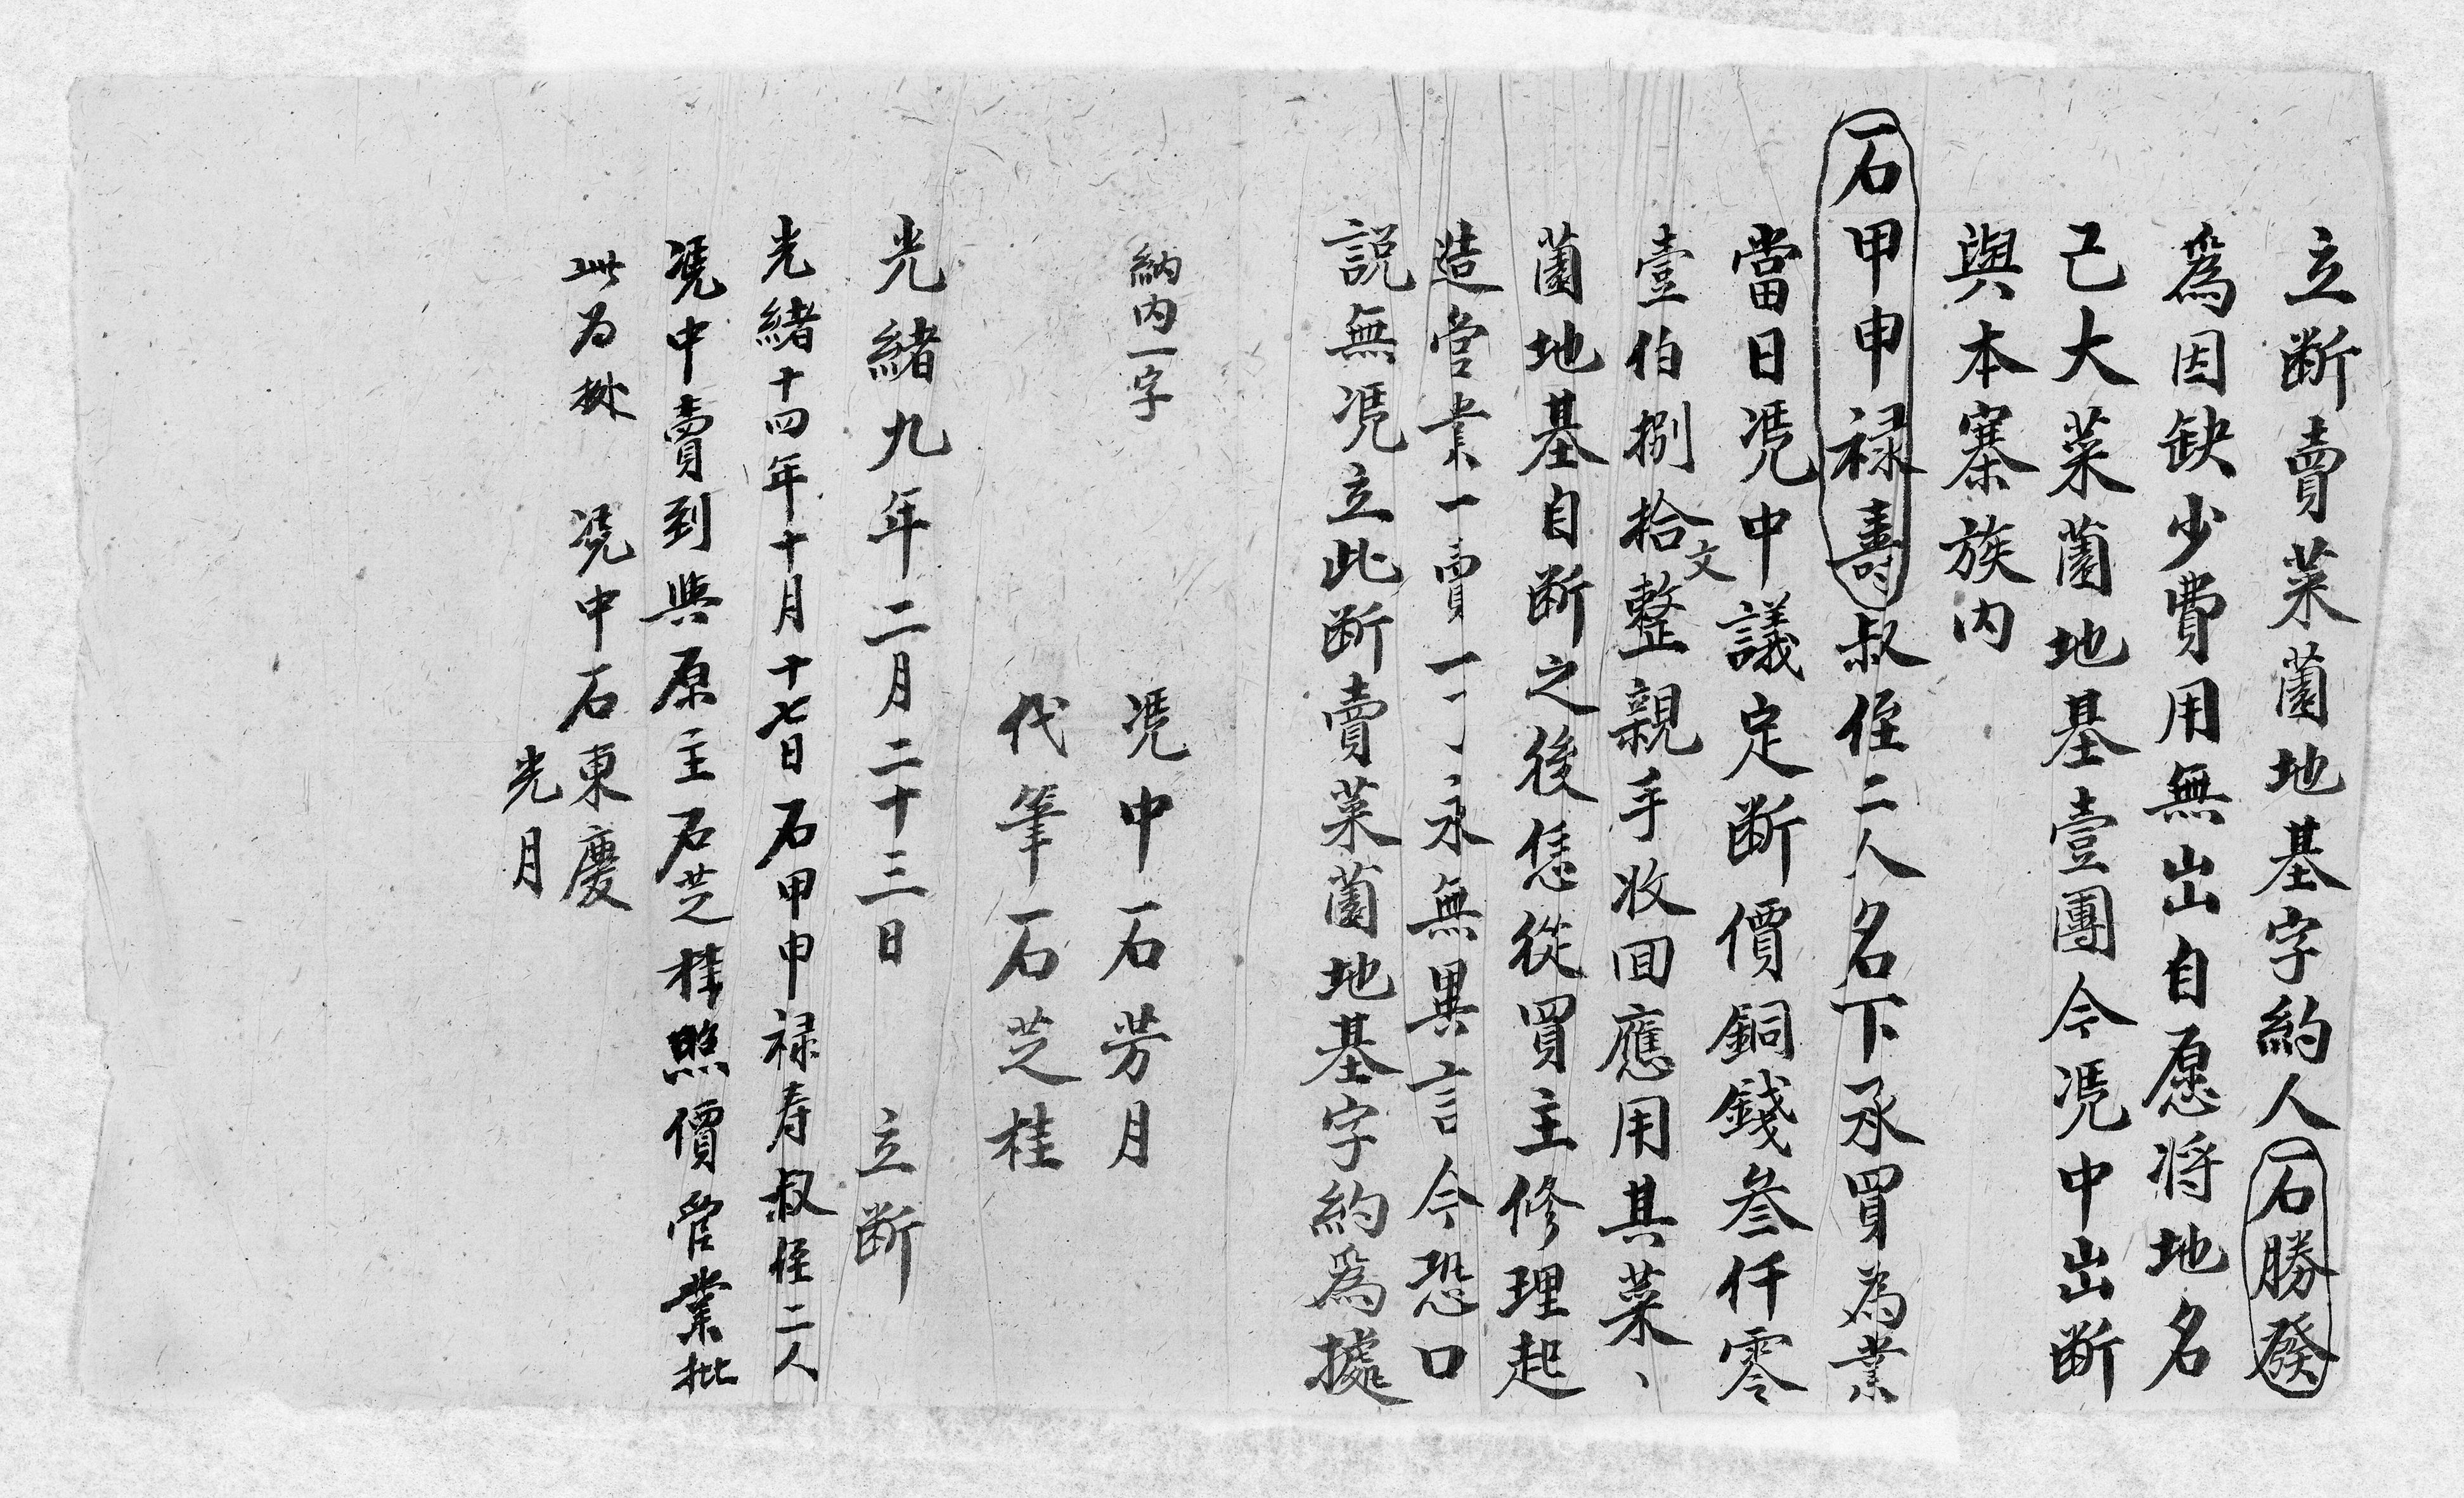 立断賣菜薗地基字約人石勝發
爲因缺少費用無出自愿将地名
己大菜薗地基壹團今凴中出断
與本寨族内
石甲申禄壽叔侄二人名下承買為業
當日凴中議定断價銅錢叁仟零
壹伯捌拾文整親手收回應用其菜、
薗地基自断之後恁從買主修理起
造管業一賣一了、永無異言今恐口
説無凴立此断賣菜薗地基字約爲據
納内一字
凴中石芳月
代筆石芝桂
光緒九年二月二十三日 立断
光緒十四年十月十七日石甲申禄寿叔侄二人
凴中賣到與原主石芝桂照價管業批
此为據 凴中石東慶
光月